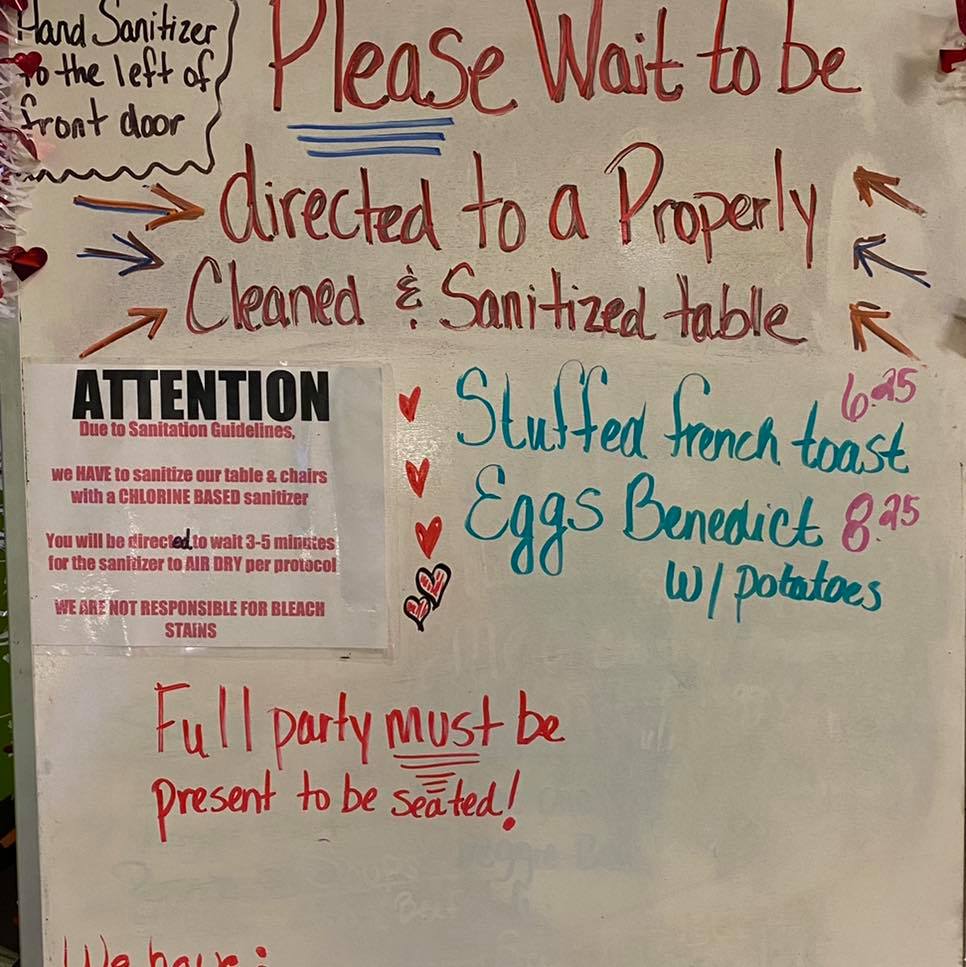 Hand Sanitizer
to the left of
front door
Please Wait to be
directed to a Properly
Cleaned & Sanitized table
ATTENTION
Due to Sanitation Guidelines,
we HAVE to sanitize our table & chairs
with a CHLORINE BASED sanitizer
You will be directed to wait 3-5 minutes
for the sanitizer to AIR DRY per protocol
WE ARE NOT RESPONSIBLE FOR BLEACH
STAINS
6.25
Stuffed french toast
Eggs Benedict 8.25
W/ potatoes
Full party must be
present to be seated!
We have: